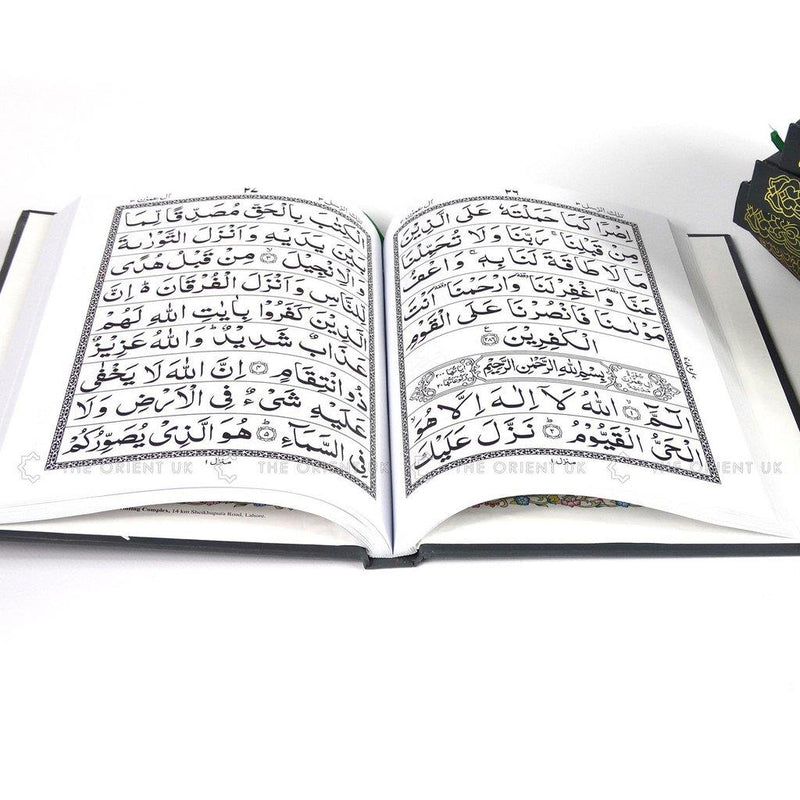 تلك الرسل ٣
٣٦
اِصۡرًا كَمَا حَمَلۡتَهٗ عَلَى الَّذِيۡنَ
مِنۡ قَبۡلِنَا ۚ رَبَّنَا وَلَا تُحَمِّلۡنَا
مَا لَا طَاقَةَ لَنَا بِهٖ ۚ وَاعۡفُ
عَنَّا ۥ وَاغۡفِرۡلَنَا ۥ وَارۡحَمۡنَا ۥ اَنۡتَ
مَوۡلٰٮنَا فَانۡصُرۡنَا عَلَى الۡقَوۡمِ
الۡكٰفِرِيۡنَ ۝٢٨٦
بِسۡمِ اللهِ الرَّحۡمٰنِ الرَّحِيۡمِ
الٓمّٓ ۝١ اللهُ لَاۤ اِلٰهَ اِلَّا هُوَ
الۡحَىُّ الۡقَيُّوۡمُ ۝٢ نَزَّلَ عَلَيۡكَ
منزل ١
اٰل عمران ٣
٣٧
الۡكِتٰبَ بِالۡحَقِّ مُصَدِّقًا لِّمَا
بَيۡنَ يَدَيۡهِ وَاَنۡزَلَ التَّوۡرٰٮةَ
وَالۡاِنۡجِيۡلَ ۝٣ مِنۡ قَبۡلُ هُدًى
لِّلنَّاسِ وَاَنۡزَلَ الۡفُرۡقَانَ ؕ اِنَّ
الَّذِيۡنَ كَفَرُوۡا بِاٰيٰتِ اللهِ لَهُمۡ
عَذَابٌ شَدِيۡدٌ ؕ وَاللهُ عَزِيۡزٌ
ذُو انۡتِقَامٍ ۝٤ اِنَّ اللهَ لَا يَخۡفٰى
عَلَيۡهِ شَىۡءٌ فِى الۡاَرۡضِ وَلَا
فِى السَّمَآءِ ۝٥ هُوَ الَّذِىۡ يُصَوِّرُكُمۡ
منزل ١
THE ORIENT UK THE ORIENT UK THE ORIENT UK THE ORIENT UK
Complex, 14 km Sheikhupura Road, Lahore.